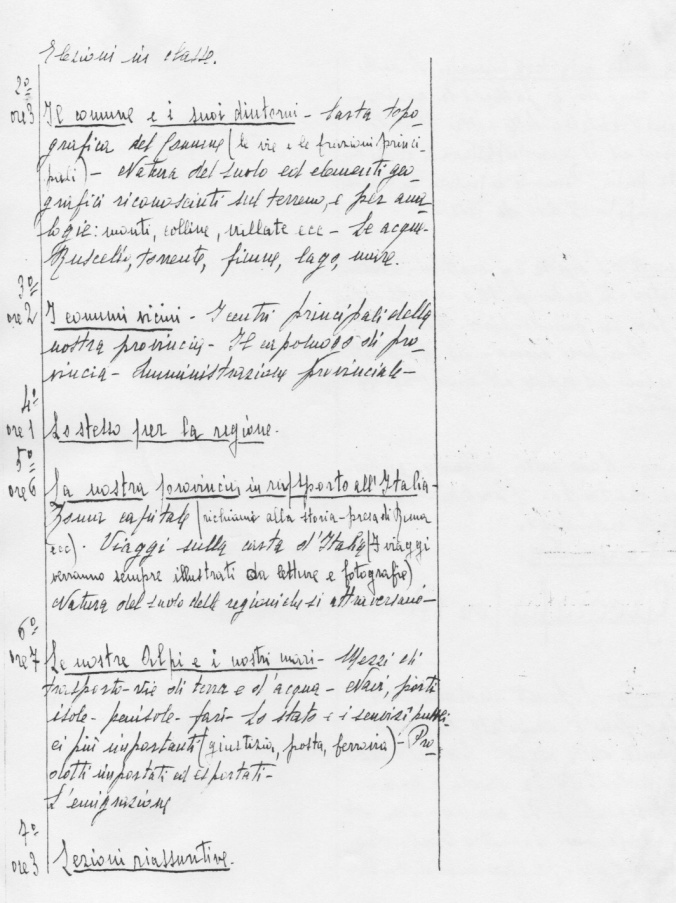 Elezioni in classe.
2º
ore 3 Il comune e i suoi dintorni - Carta topo-
grafica del Comune (le vie e le frazioni princi-
pali) - Natura del suolo ed elementi geo-
grafici riconosciuti sul terreno, e per ana-
logie: monti, colline, vallate ecc - Le acque -
Ruscelli, torrente, fiume, lago, mare.
3º
ore 2 I comuni vicini - I centri principali della
nostra provincia - Il capoluogo di pro-
vincia - Amministrazione provinciale -
4º
ore 1 Lo stesso per la regione.
5º
ore 6 La nostra provincia in rapporto all'Italia -
Roma capitale (richiami alla storia - presa di Roma
ecc). Viaggi sulla carta d'Italia (I viaggi
verranno sempre illustrati da letture e fotografie)
Natura del suolo delle regioni che si attraversano -
6º
ore 7 Le nostre Alpi e i nostri mari - Mezzi di
trasporto - vie di terra e d'acqua - Navi, porti
isole - penisole - fari - Lo stato e i servizi pubbli-
ci più importanti (giustizia, posta, ferrovia) - Pro-
dotti importati ed esportati -
L'emigrazione
7º
ore 3 Lezioni riassuntive.